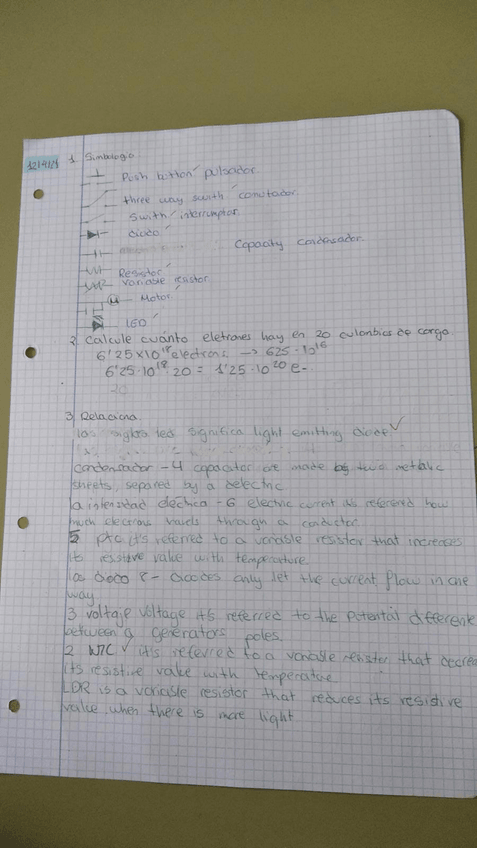 12/4/21
1. Simbologia.
Push button / pulsador
three way swith / conmutador
Swith / interruptor
diodo
Capacity condensador.
Resistor
variable resistor
M Motor
LED
2 Calcule cuánto eletrones hay en 20 culombios de carga.
6'25x10¹⁸ electrons → 625·10¹⁶
6'25·10¹⁸·20 = 1'25·10²⁰ e-
20
3 Relaciona.
las siglas led significa light emitting diode ✓
condensador - 4 capacitor are made by two metalic
sheets, separed by a delectric
la intensidad electrica - 6 electric current it's refered how
much electrons travels through a conductor.
5 ptc it's referred to a variable resistor that increases
its resistive value with temperature.
los diodo 8 - diodes only let the current flow in one
way
3 voltaje voltage it's referred to the potential difference
between a generators poles.
2 NTC it's referred to a variable resistor that decrea
its resistive value with temperature
LDR is a variable resistor that reduces its resistive
value when there is more light